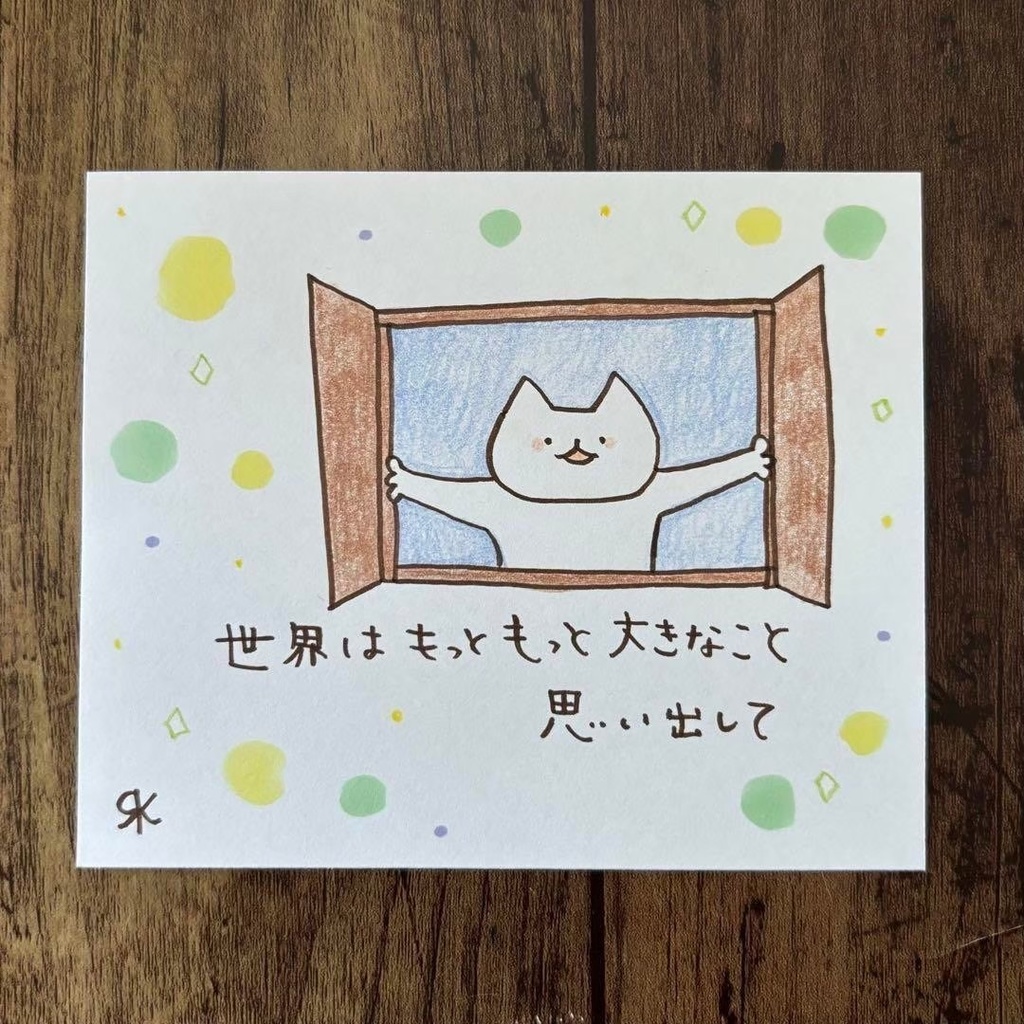 世界はもっともっと大きなこと
思い出して